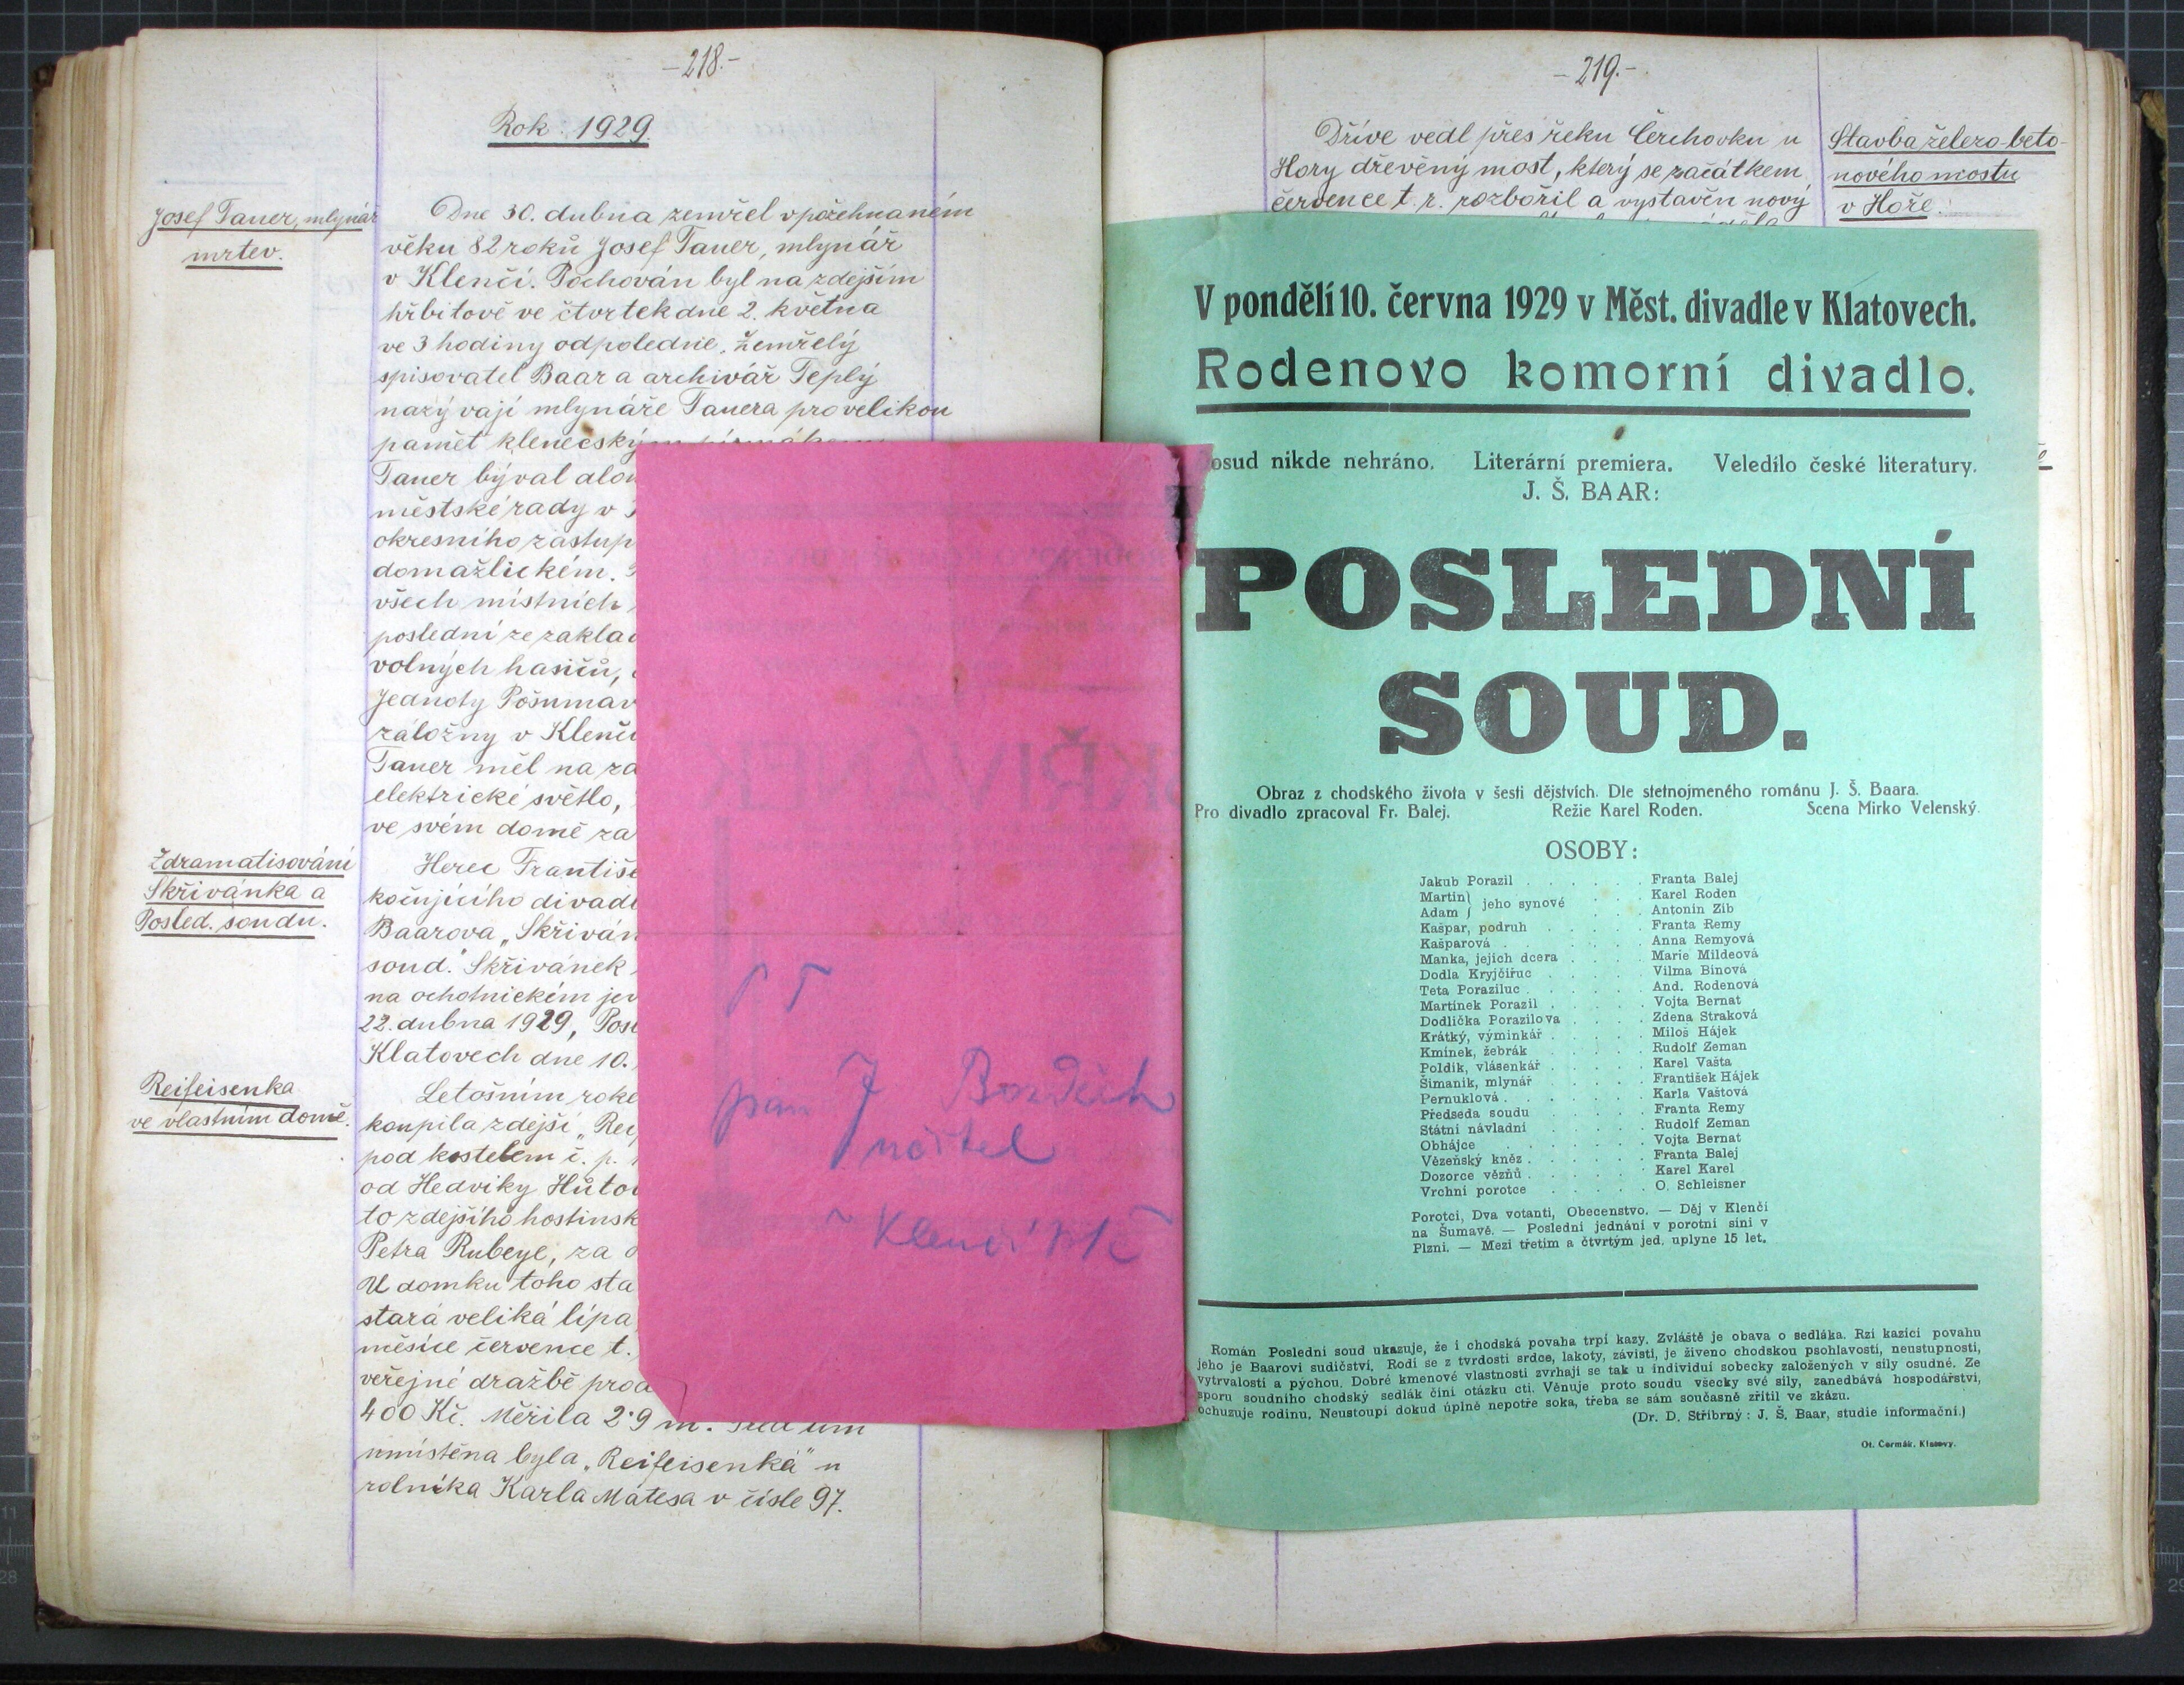 -218.-
Rok 1929.
Josef Tauer, mlynář
mrtev.
Dne 30. dubna zemřel v požehnaném
věku 82 roků Josef Tauer, mlynář
v Klenčí. Pochován byl na zdejším
hřbitově ve čtvrtek dne 2. května
ve 3 hodiny odpoledne. Zemřelý
spisovatel Baar a archivář Teplý
nazývají mlynáře Tauera pro velikou
pamět klenečským
Tauer býval
městské rady v
okresního zástup
domažlickém.
všech místních
poslední ze zakla
volných hasičů,
Jednoty Pošumav
záložny v Klenč
Tauer měl na
elektrické světlo,
ve svém domě za
Zdramatisování
Skřivánka a
Posled. soudu.
Herec Františe
kočujícího divad
Baarova „Skřiván
soud." Skřivánek
na ochotnickém
22. dubna 1929, Pos
Klatovech dne 10.
Reifeisenka
ve vlastním domě.
Letošním roke
koupila zdejší „Rei
pod kostelem č. p.
od Hedviky Hůtov
to zdejšího hostinsk
Petra Rubeye, za
U domku toho sta
stará veliká lípa
měsíce července t.
veřejné dražbě prod
400 Kč. Měřila 2·9 m.
umístěna byla „Reifeisenka" u
rolníka Karla Mátesa v čísle 97.
PT
pan J Bozděch
učitel
v Klenčí
-219.-
Dříve vedl přes řeku Čerchovku u
Hory dřevěný most, který se začátkem
července t. r. rozbořil a vystavěn nový
Stavba železo-beto-
nového mostu
v Hoře.
V pondělí 10. června 1929 v Měst. divadle v Klatovech.
Rodenovo komorní divadlo.
osud nikde nehráno. Literární premiera. Veledílo české literatury.
J. Š. BAAR:
POSLEDNÍ
SOUD.
Obraz z chodského života v šesti dějstvích. Dle stetnojmeného románu J. Š. Baara.
Pro divadlo zpracoval Fr. Balej. Režie Karel Roden. Scena Mirko Velenský.
OSOBY:
Jakub Porazil . . . . . . Franta Balej
Martin } jeho synové . . . Karel Roden
Adam } . . . Antonín Zíb
Kašpar, podruh . . . . . Franta Remy
Kašparová . . . . . . Anna Remyová
Manka, jejich dcera . . . . Marie Mildeová
Dodla Kryjčířuc . . . . . Vilma Binová
Teta Poraziluc . . . . . . And. Rodenová
Martínek Porazil . . . . . Vojta Bernat
Dodlička Porazilova . . . . Zdena Straková
Krátký, výminkář . . . . . Miloš Hájek
Kmínek, žebrák . . . . . Rudolf Zeman
Poldík, vlásenkář . . . . . Karel Vašta
Šimaník, mlynář . . . . . František Hájek
Pernuklová . . . . . . . Karla Vaštová
Předseda soudu . . . . . Franta Remy
Státní návladní . . . . . Rudolf Zeman
Obhájce . . . . . . . Vojta Bernat
Vězeňský kněz . . . . . . Franta Balej
Dozorce vězňů . . . . . . Karel Karel
Vrchní porotce . . . . . O. Schleisner
Porotci, Dva votanti, Obecenstvo. — Děj v Klenčí
na Šumavě. — Poslední jednání v porotní síni v
Plzni. — Mezi třetím a čtvrtým jed. uplyne 15 let.
Román Poslední soud ukazuje, že i chodská povaha trpí kazy. Zvláště je obava o sedláka. Rzí kazící povahu
jeho je Baarovi sudičství. Rodí se z tvrdosti srdce, lakoty, závisti, je živeno chodskou psohlavostí, neústupností,
vytrvalostí a pýchou. Dobré kmenové vlastnosti zvrhají se tak u individuí sobecky založených v síly osudné. Ze
sporu soudního chodský sedlák činí otázku cti. Věnuje proto soudu všecky své síly, zanedbává hospodářství,
ochuzuje rodinu. Neustoupí dokud úplně nepotře soka, třeba se sám současně zřítil ve zkázu.
(Dr. D. Stříbrný: J. Š. Baar, studie informační.)
Ot. Čermák, Klatovy.